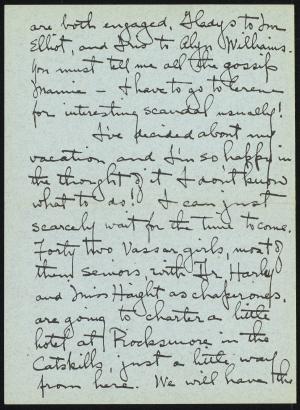 are both engaged, Gladys to Jim
Elliot, and Iris to Alyn Williams.
You must tell me all the gossip
Mamie – I have to go to
for interesting scandal usually!
I've decided about my
vacation and I'm so happy in
the thought of it I don't know
what to do! I can just
scarcely wait for the time to come.
Forty two Vassar girls, most of
them seniors, with Dr. Hartley
and Miss Haight as chaperones,
are going to charter a little
hotel at in the
Catskills, just a little way
from here. We will have the